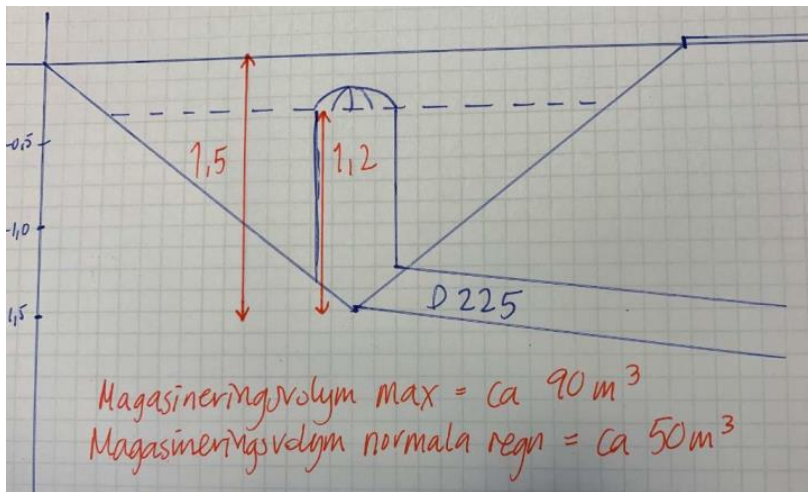 -0,5
1,5
1,2
-1,0
1,5
D 225
Magasineringsvolym max = ca 90 m³
Magasineringsvolym normala regn = ca 50 m³